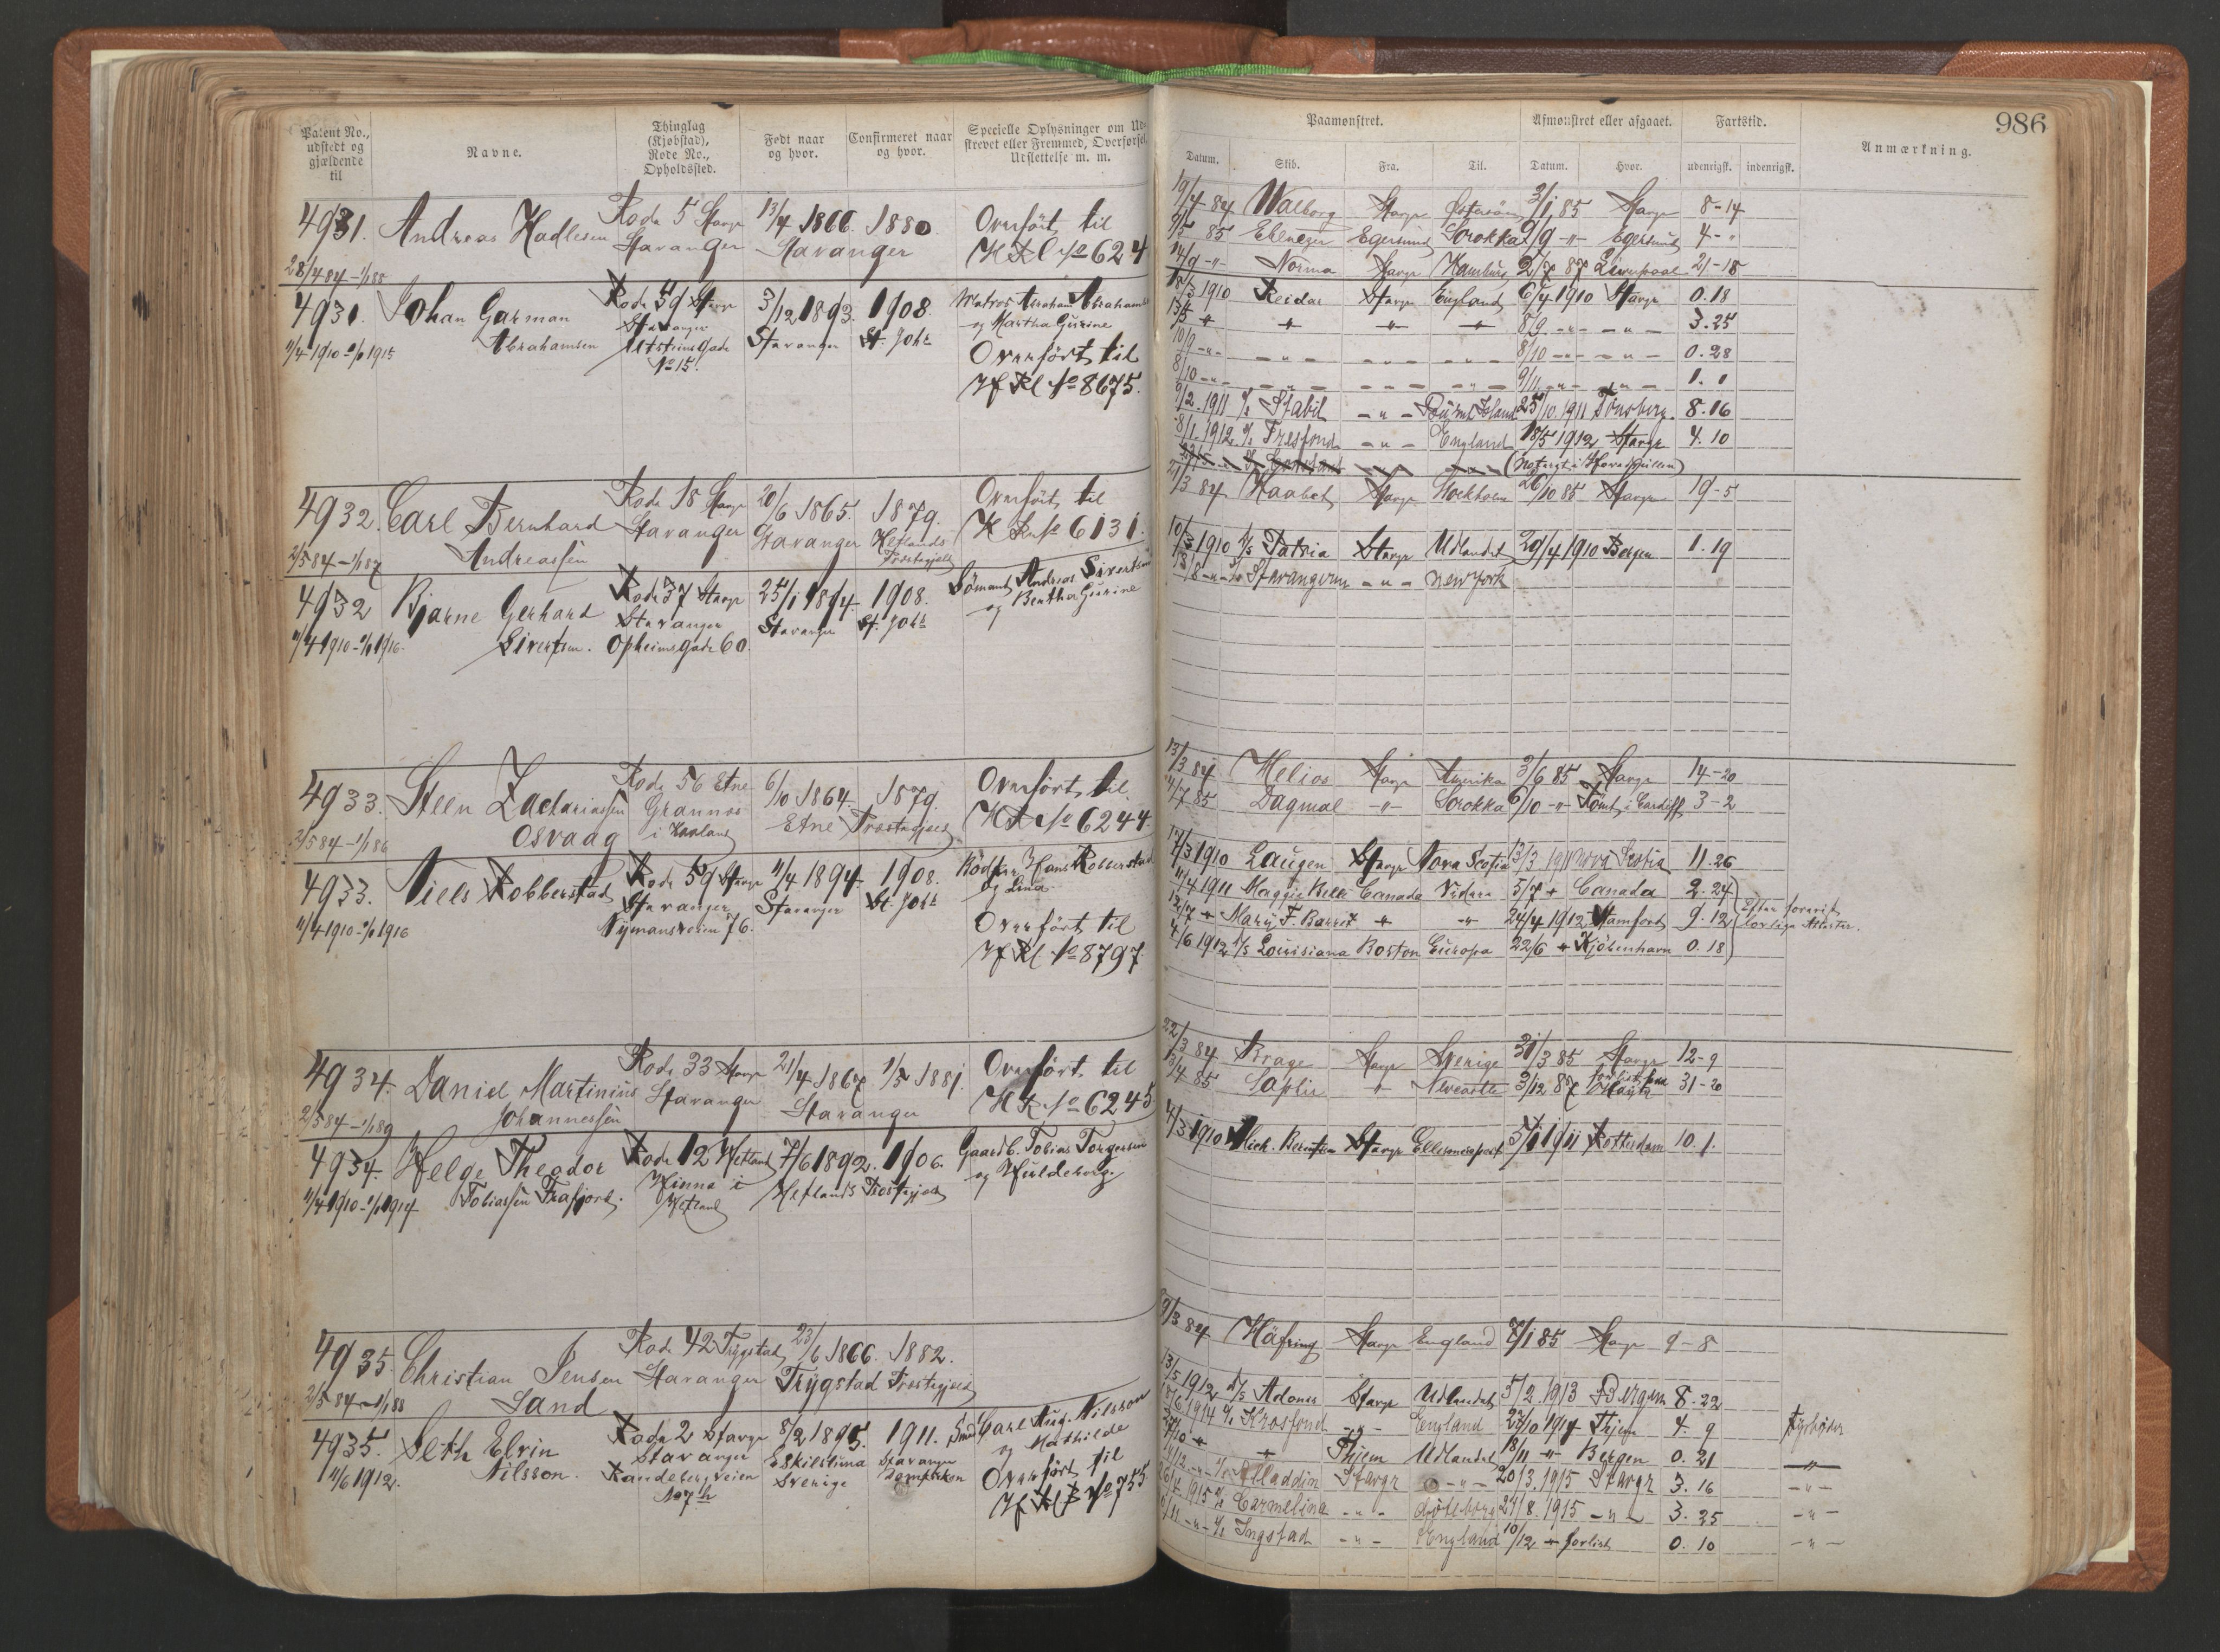 Patent No., udstedt og gjældende til
Navne.
Thinglag (Kjøbstad), Rode No., Opholdssted.
Født naar og hvor.
Confirmeret naar og hvor.
Specielle Oplysninger om Udstrevet eller Fremmed, Overførsel, Udslettelse m. m.
4931. Andreas Hadlesen Rode 5 Stavgr 13/4 1866. 1880. Overført til
Stavanger Stavanger
28/4 84 - 1/1 85
4931. Johan Garman Rode 59 Stavgr 3/12 1893. 1908. Matros Abraham Abrahamsen
Abrahamsen Stavanger Stavanger St. Joh. og Martha Gurine
11/4 1910 - 1/1 1915 No 15. Overført til
No 8675.
4932. Carl Bernhard Rode 18 Stavgr 20/6 1865. 1879. Overført til
Andreassen Stavanger Stavanger Hetlands No 6131.
2/5 84 - 1/1 87 Præstegjeld
4932 Bjarne Gerhard Rode 37 Stavgr 25/1 1894. 1908. Sømand Andreas Sivertsen
Sivertsen. Stavanger Stavanger St. Joh. og Bertha Gurine
11/4 1910 - 1/1 1916. Opheimsgade 60.
4933. Steen Zachariassen Rode 56 Etne 6/10 1864. 1879. Overført til
Osvaag Etne Præstegjeld No 6244.
2/5 84 - 1/1 86
4933. Niels Robberstad Rode 59 Stavgr 11/4 1894. 1908. Hans Robberstad
Stavanger Stavanger St. Joh. og Lina.
11/4 1910 - 1/1 1916 Nymansveien 76. Overført til
No 8797.
4934. Daniel Martinius Rode 33 Stavgr 21/4 1867 1/5 1881. Overført til
Johannessen Stavanger Stavanger No 6245
2/5 84 - 1/1 89
4934. Helge Theodor Rode 12 Hetland 7/6 1892. 1906. Gaardb. Tobias Torgersen
Tobiassen Frafjord. Hinna i Hetland Hetlands Præstegjeld og Huldeborg.
11/4 1910 - 1/1 1914
4935. Christian Jensen Rode 42 Trygstad 23/6 1866. 1882.
Sand Stavanger Trygstad Præstegjeld
2/5 84 - 1/1 88
4935. Seth Elvin Rode 2 Stavgr 8/2 1895. 1911. Smed Carl Aug. Nilsson
Nilsson. Stavanger Eskilstuna Stavanger og Mathilde
11/6 1912. Randebergveien Sverige Domkirken Overført til
No 7 b No 755
986
Paamønstret. Afmønstret eller afgaaet. Fartstid. Anmærkning.
Datum. Skib. Fra. Til. Datum. Hvor. udenrigsk. indenrigsk.
19/4 84 Walborg Stavgr Østersøen 3/1 85 Stavgr 8-14
85 Ebenezer Egersund Sorokka 9/9 -"- Egersund 4-"
14/9 -"- Norma Stavgr Hamburg 2/7 87 Liverpool 21-18
18/3 1910 Reidar Stavgr England 6/4 1910 Stavgr 0.18
8/9 -"- -"- 3.25
10/9 -"- -"- -"- -"- 8/10 -"- -"- 0.28
8/10 -"- -"- -"- -"- 9/11 -"- -"- 1.1
9/2. 1911 Stabil -"- 25/10. 1911 Tønsberg. 8.16
8/1. 1912. Tresfond -"- England 18/5 1912 Stavgr 4.10
21/3 84 Haabet Stavgr Stockholm 26/10 85 Stavgr 19-5
10/3 1910 D/S Patria Stavgr Udlandet 29/4 1910 Bergen 1.19
Stavangeren -"- New York
13/3 84 Helios Stavgr Amerika 3/6 85 Stavgr 14-20
4/7 85 Dagmal -"- Sorokka 6/10 -"- Rømt i Cardiff 3-2
17/3 1910 Laugen Stavgr Nova Scotia 13/3 1911 Nova Scotia 11.26
11/4 1911 Maggie Belle Canada 5/7 Canada 2.24
12/7 Mary F. Barret 24/4 1912 Stamford 9.12
4/6 1912 D/S Louisiana Boston Europa 22/6 Kjøbenhavn 0.18
22/3 84 Brage Stavgr Sverige 31/3 85 Stavgr 12-9
3/4 85 Saphir " Newcastle 3/12 87 31-20
4/3 1910 Mich. Berntsen Stavgr Ellesmereport 5/1 1911 Rotterdam 10.1.
9/3 84 Häfring Stavgr England 7/1 85 Stavgr 9-8
13/5 1912 D/S Adonis Stavgr Udlandet 5/2. 1913 Bergen 8.22
18/6 1914 Krosfond -"- England 27/10 1914 Thjem 4.9 Fyrbøder
27/10 Thjem Udlandet 18/11 -"- Bergen 0.21 -"-
Alladdin Stavgr -"- 20/3. 1915 Stavgr 3.16 -"-
1915 Carmelina -"- Gøteborg 24/8. 1915 -"- 3.25 -"-
-"- Ingstad -"- England 10/12 forlist 0.10 -"-